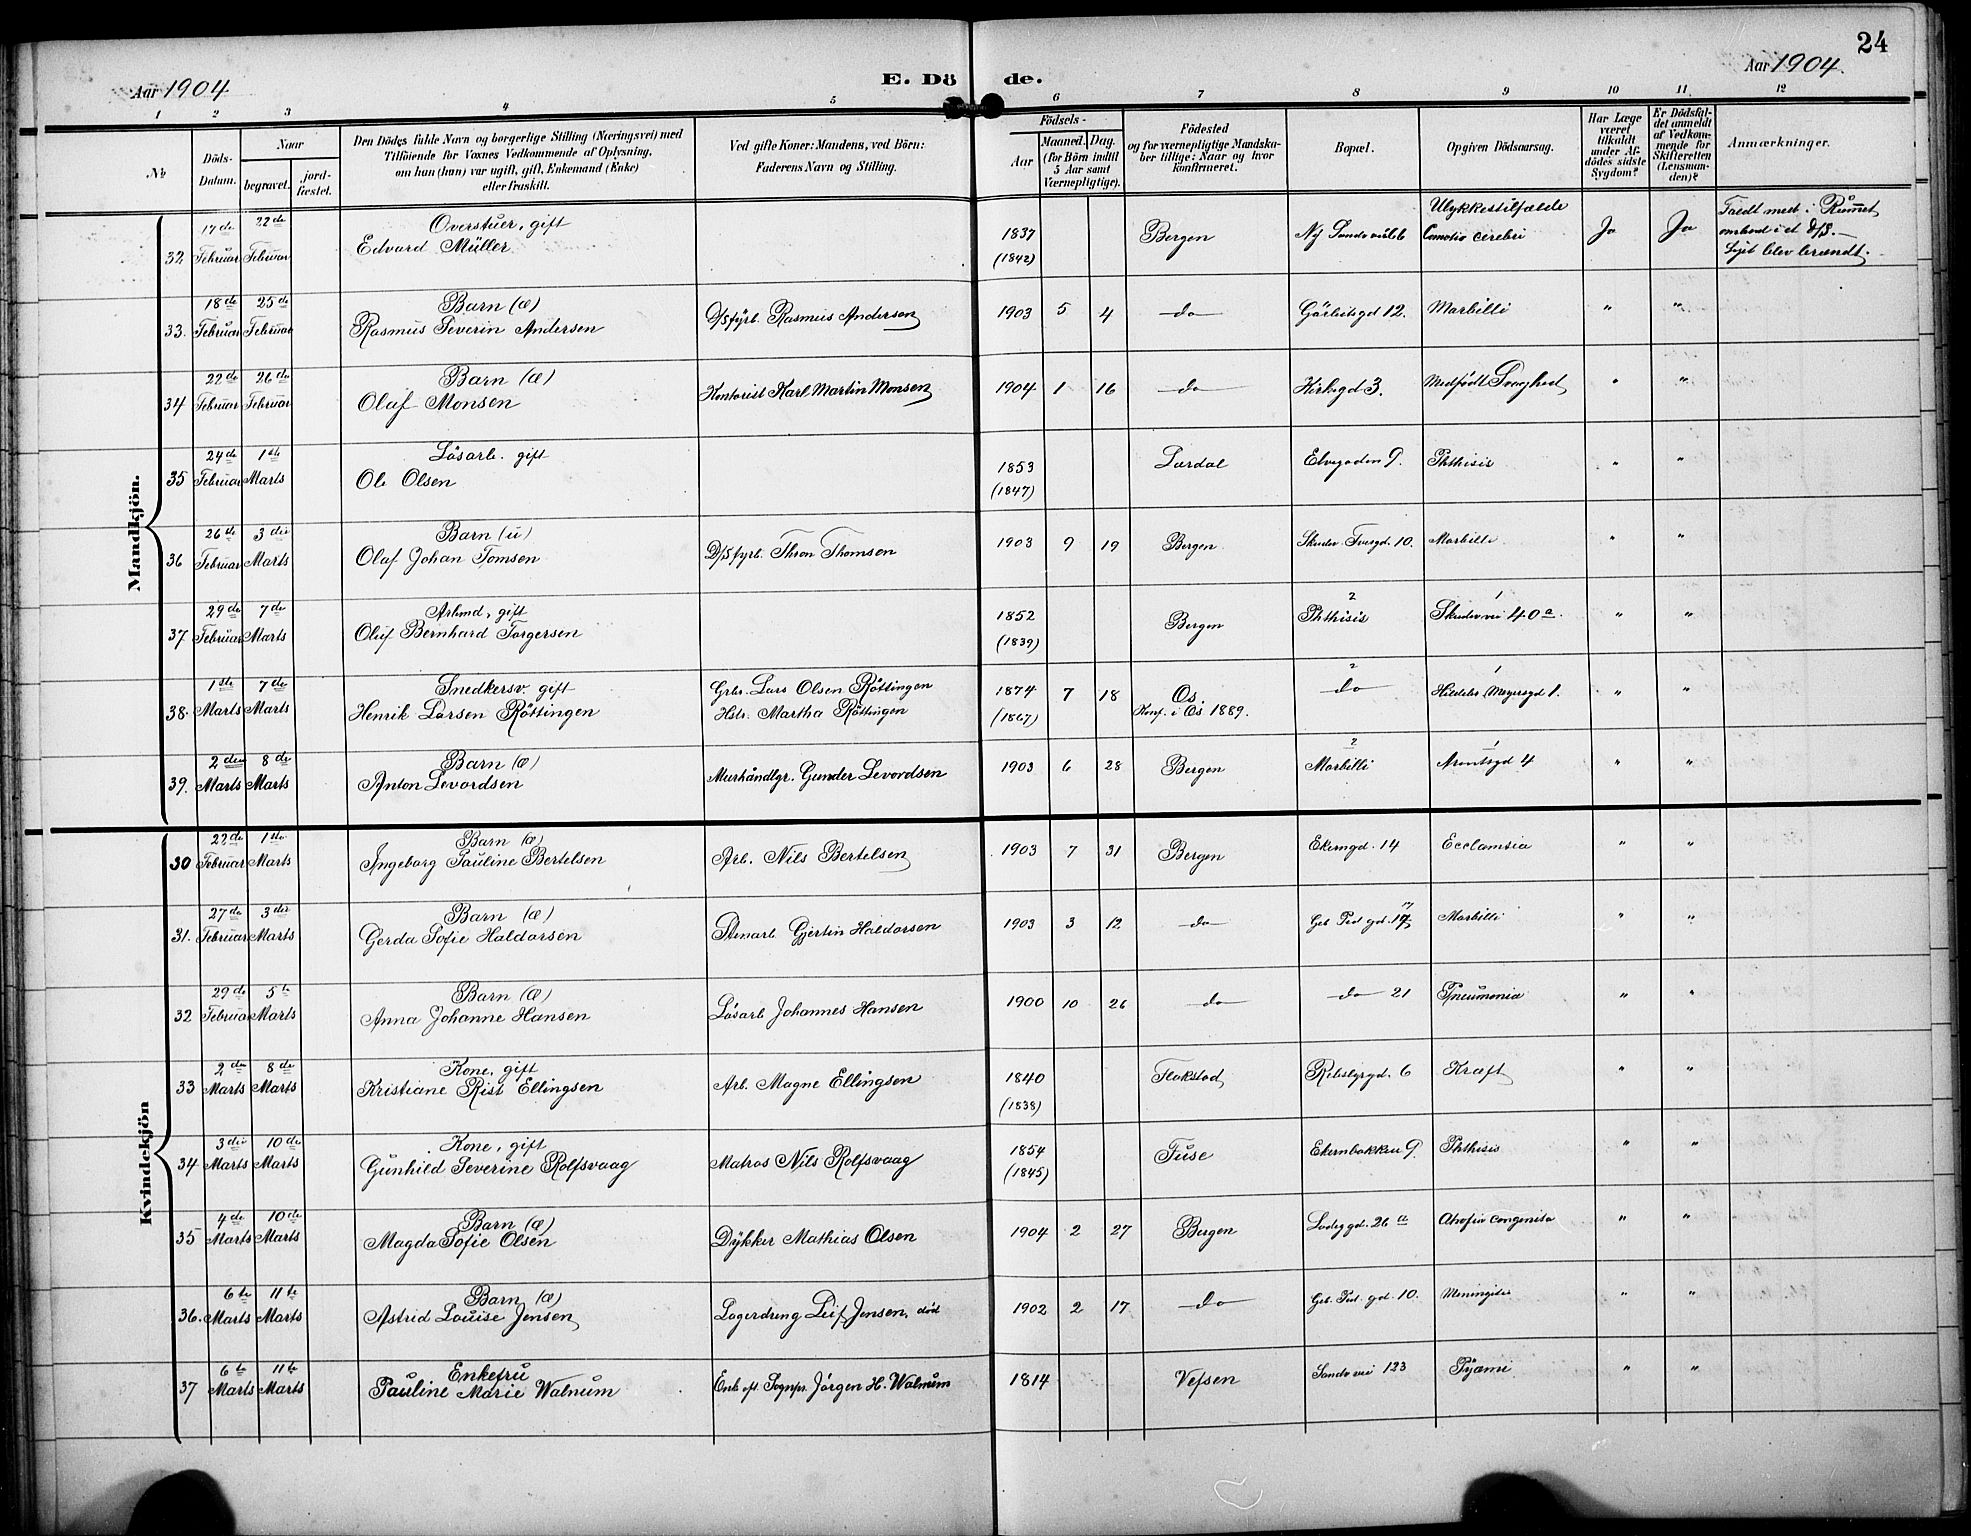 24
Aar 1904
E. Dö de.
Aar 1904.
1 2 3 4 5 6 7 8 9 10 11 12
No
Döds-Datum.
Naar
begravet.
jordfæstet.
Den Dödes fulde Navn og borgerlige Stilling (Næringsvei) med
Tilföiende for Voxnes Vedkommende af Oplysning,
om han (hun) var ugift, gift, Enkemand (Enke)
eller fraskilt.
Ved gifte Koner: Mandens, ved Börn:
Faderens Navn og Stilling.
Födsels-
Aar
Maaned. Dag.
(for Börn indtil
5 Aar samt
Værnepligtige).
Födested
og for værnepligtige Mandska-
ber tillige: Naar og hvor
konfirmeret.
Bopæl.
Opgiven Dödsaarsag.
Har Læge
været
tilkaldt
under Af-
dödes sidste
Sygdom?
Er Dödsfal-
det anmeldt
af Vedkom-
mende for
Skifteretten
(Lensman-
den)?
Anmærkninger.
Mandkjön.
32 17de Februar 22de Februar Overstuer, gift Edvard Müller 1837 (1842) Bergen Ulykkestilfælde Comotio cerebri Ja Ja Faldt ned i Rummet ombord i et D/S. – Liget blev brændt.
33. 18de Februar 25de Februar Barn (æ) Rasmus Severin Andersen D/Sfyrb. Rasmus Andersen 1903 5 4 do 12. Morbilli " "
34 22de Februar 26de Februar Barn (æ) Olaf Monsen Kontorist Karl Martin Monsen 1904 1 16 do Kirkegd 3. Medfødt Svaghed " "
35 24de Februar 1ste Marts Løsarb. gift Ole Olsen 1853 (1847) Lærdal Elvegaden 9. Phthisis " "
36 26de Februar 3die Marts Barn (u) Olaf Johan Tomsen D/Sfyrb. Thron Thomsen 1903 9 19 Bergen Skudev. Tvergd. 10. Morbilli " "
37 29de Februar 7de Marts Arbmd, gift Oluf Bernhard Torgersen 1852 (1839) Bergen 2 Phthisis 1 Skudevvei 40a. " "
38. 1ste Marts 7de Marts Snedkersv. gift Henrik Larsen Røttingen Grbr. Lars Olsen Røttingen Hstr. Martha Røttingen 1874 (1867) 7 18 Os. Konf. i Os 1889. 2 do 1 Hildebr. Meyersgd 1. " "
39. 2den Marts 8de Marts Barn (æ) Anton Levordsen Murhåndlgr. Gunder Levordsen 1903 6 28 Bergen 2 Morbilli 1 Arentsgd 4 " "
Kvindekjön
30 22de Februar 1ste Marts Barn (æ) Ingeborg Pauline Bertelsen Arb. Nils Bertelsen 1903 7 31 Bergen Ekerngd. 14 Ecclamsia " "
31. 27de Februar 3die Marts Barn (æ) Gerda Sofie Haldorsen Stenarb. Gjertin Haldorsen 1903 3 12 do Geb. Ped gd. 17 Morbilli " "
32 29de Februar 5te Marts Barn (æ) Anna Johanne Hansen Løsarb Johannes Hansen 1900 10 26 do do 21 Pneumonia " "
33 2den Marts 8de Marts Kone, gift Kristiane Rist Ellingsen Arb. Magne Ellingsen 1840 (1838) Flakstad 6 Kræft " "
34 3die Marts 10de Marts Kone, gift Gunhild Severine Rolfsvaag Matros Nils Rolfsvaag 1854 (1845) Fuse Ekernbakken 9. Phthisis " "
35 4de Marts 10de Marts Barn (æ) Magda Sofie Olsen Dykker Mathias Olsen 1904 2 27 Bergen Ladeggd. 26 a Atrofia congenita " "
36. 6te Marts 11te Marts Barn (æ) Astrid Louise Jensen Lagerdreng Leif Jensen, død 1902 2 17 do Geb. Ped. gd. 10. Meningitis " "
37 6te Marts 11te Marts Enkefru Pauline Marie Walnum Enk. eft. Sognpr. Jørgen H. Walnum 1814 Vefsen Sandvvei 123 Pyæmi " "